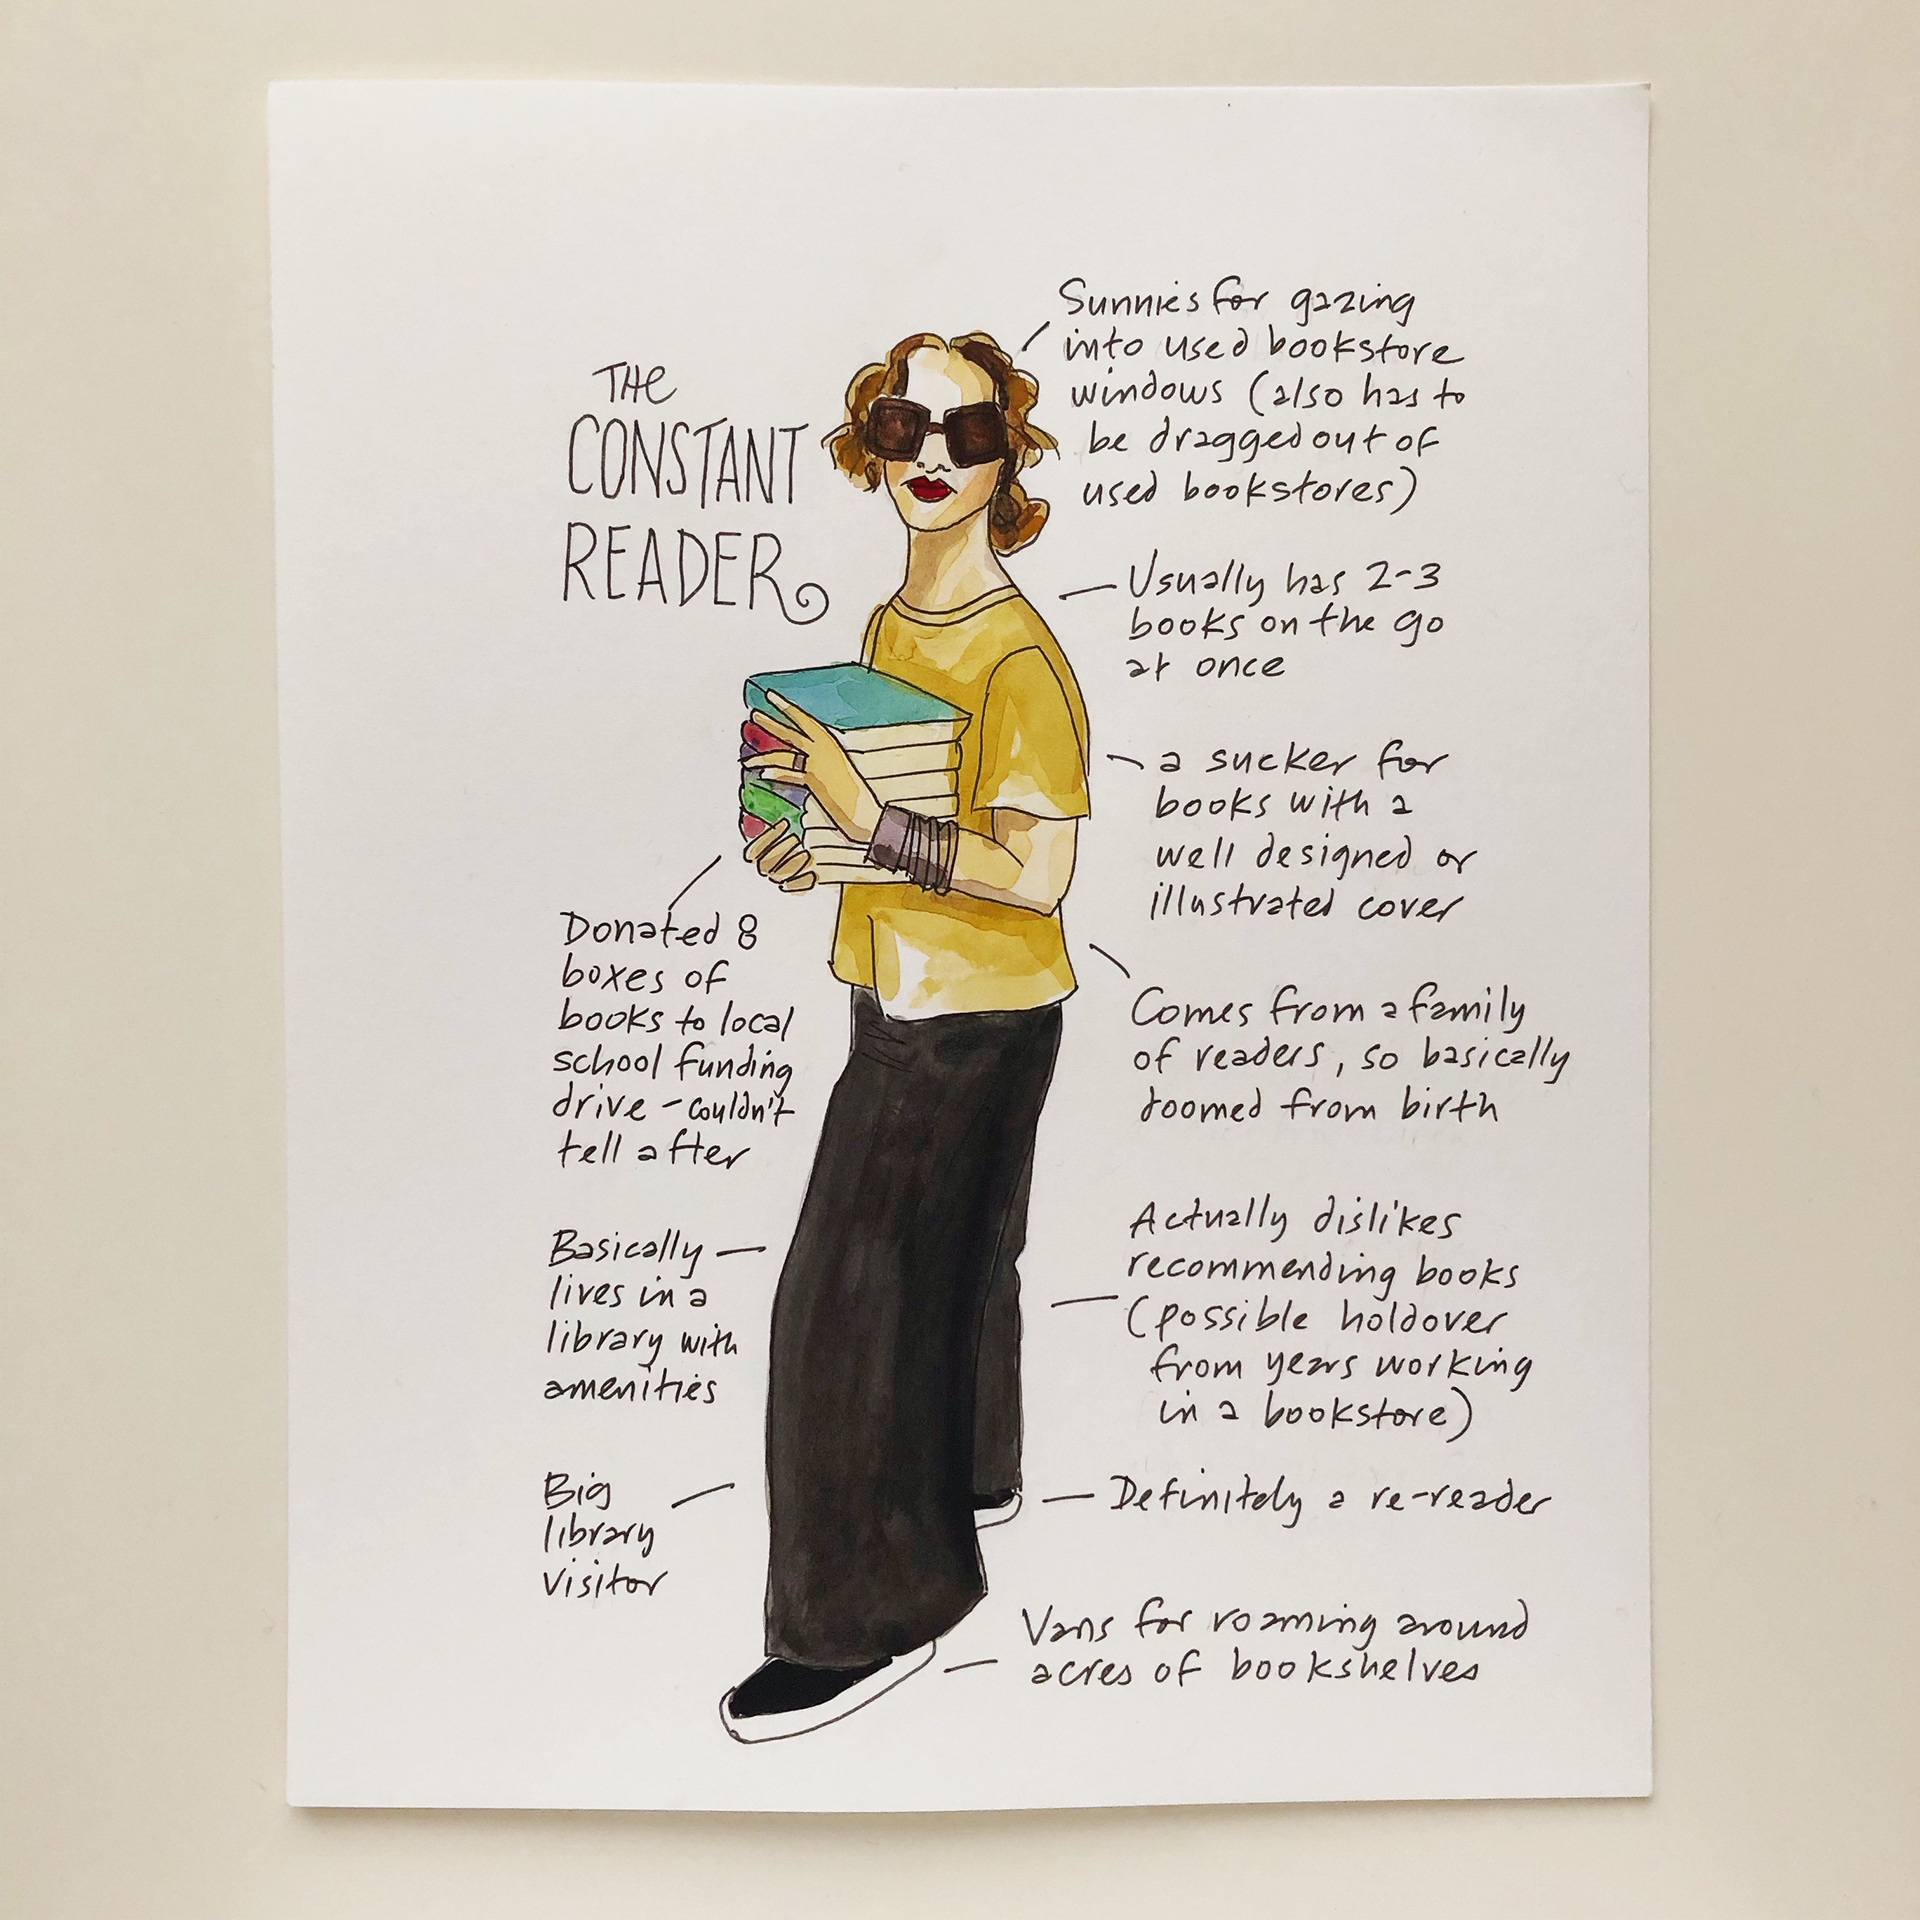 THE
CONSTANT
READER
Sunnies for gazing
into used bookstore
windows (also has to
be dragged out of
used bookstores)
Usually has 2-3
books on the go
at once
a sucker for
books with a
well designed or
illustrated cover
Comes from a family
of readers, so basically
doomed from birth
Actually dislikes
recommending books
(possible holdover
from years working
in a bookstore)
Definitely a re-reader
Vans for roaming around
acres of bookshelves
Donated 8
boxes of
books to local
school funding
drive - couldn't
tell after
Basically
lives in a
library with
amenities
Big
library
visitor